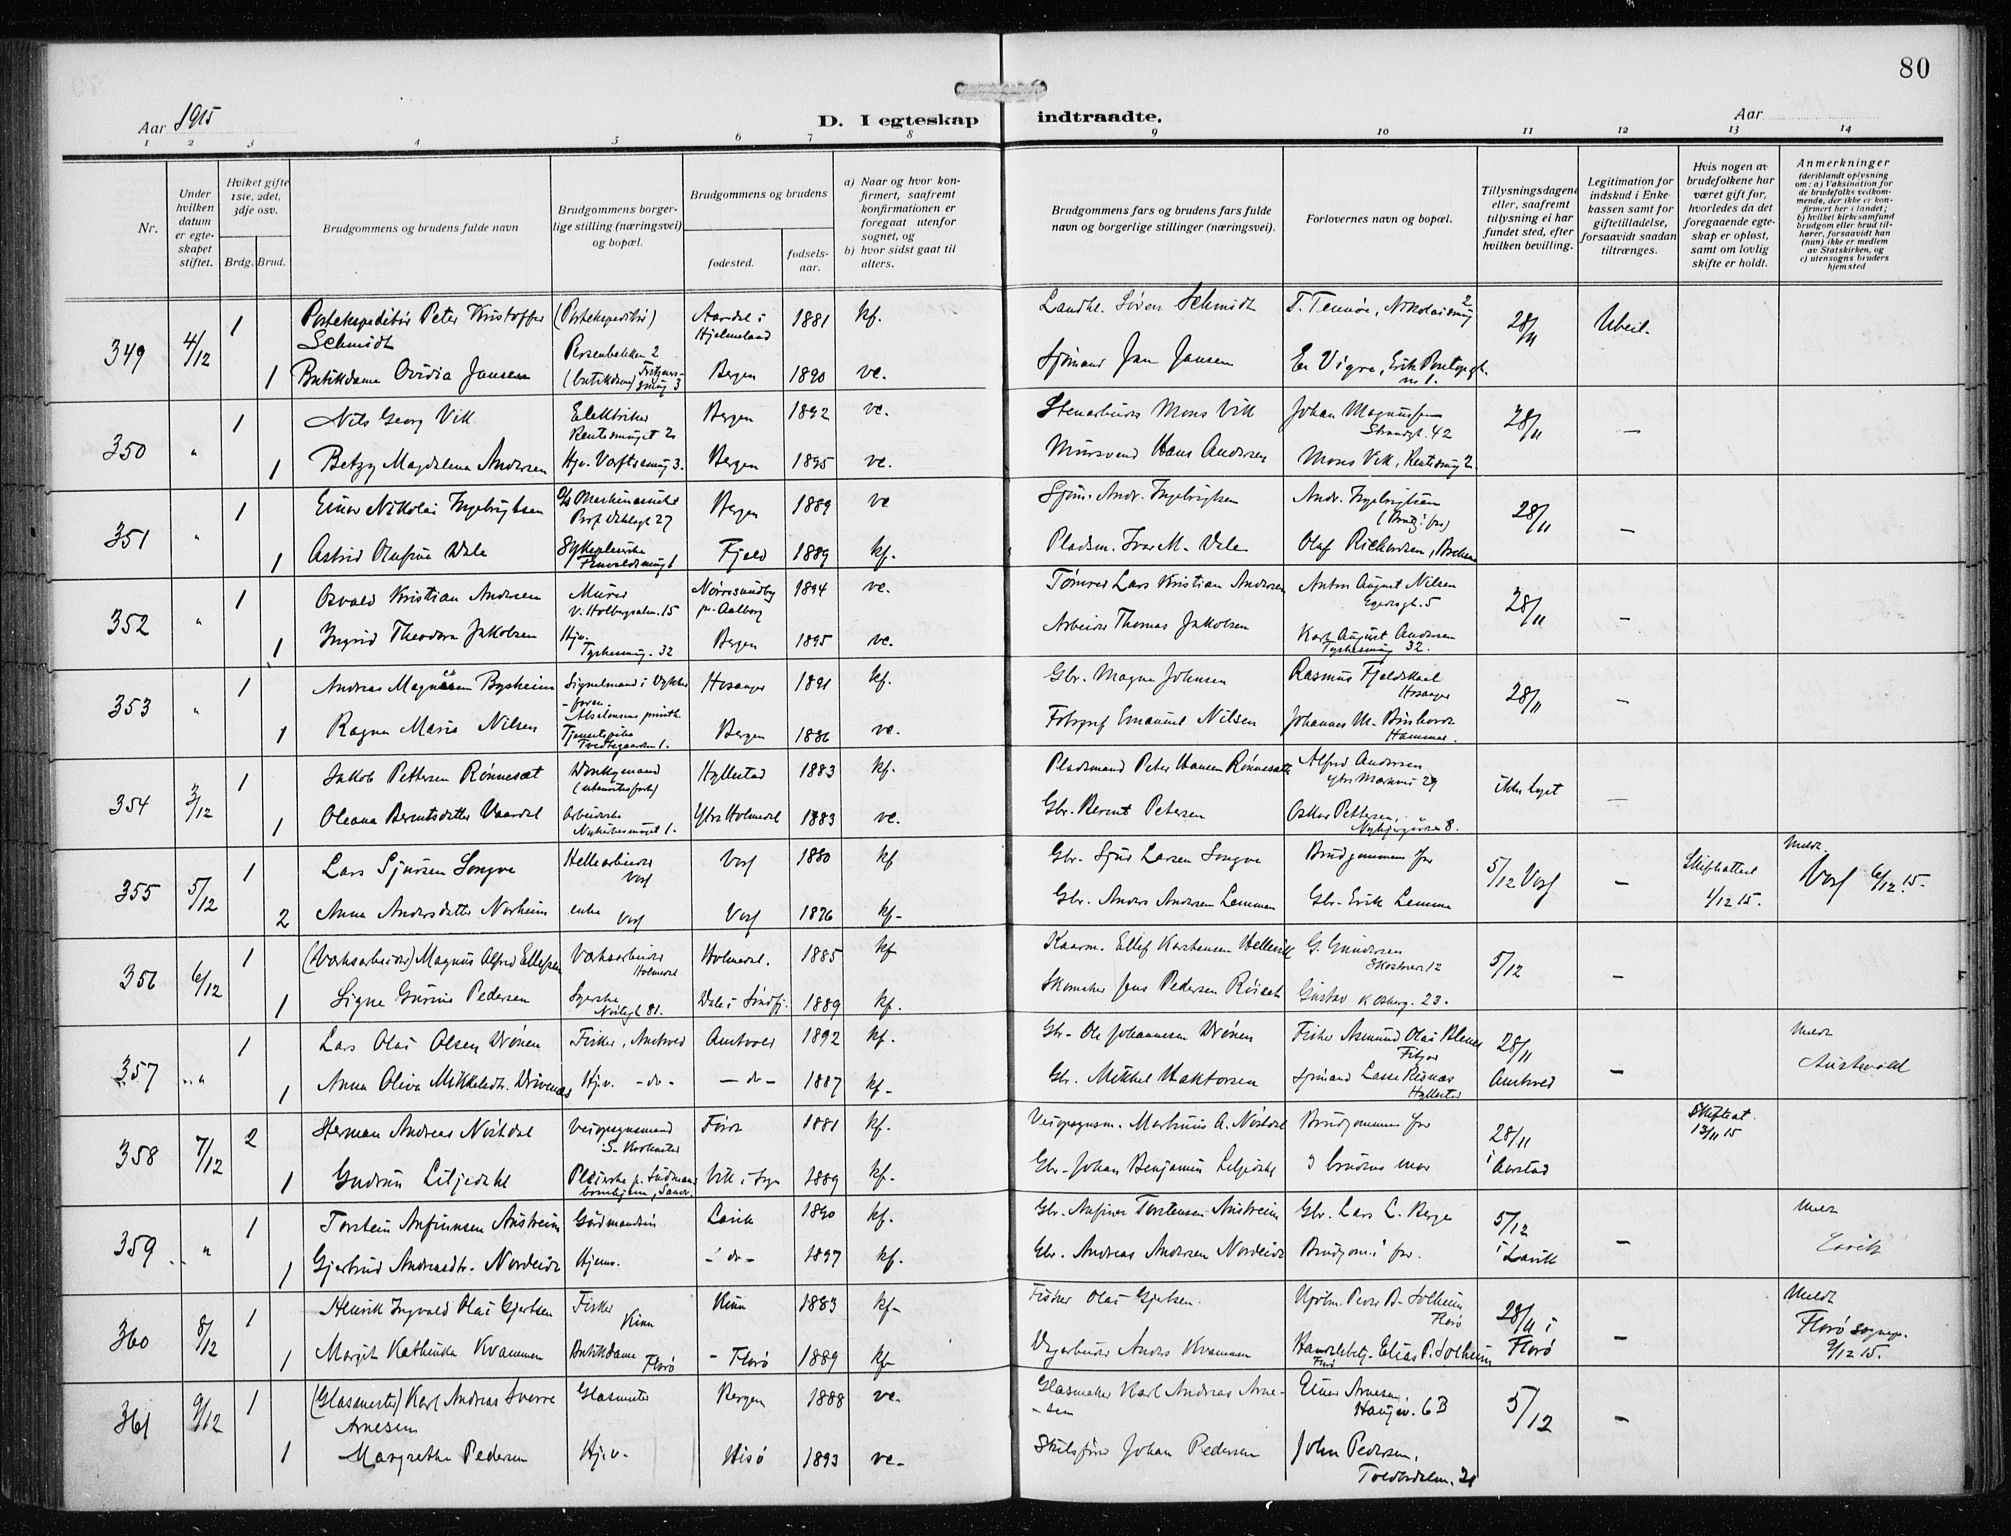 80
Aar 1915
D. I egteskap indtraadte.
Aar
1 2 3 4 5 6 7 8 9 10 11 12 13 14
Nr.
Under hvilken datum er egteskapet stiftet.
Hviket gifte 1ste, 2det, 3dje osv.
Brdg. Brud.
Brudgommens og brudens fulde navn
Brudgommens borgerlige stilling (næringsvei) og bopæl.
Brudgommens og brudens
fødested.
fødselsaar.
a) Naar og hvor konfirmert, saafremt konfirmationen er foregaat utenfor sognet, og
b) hvor sidst gaat til alters.
Brudgommens fars og brudens fars fulde navn og borgerlige stillinger (næringsvei).
Forlovernes navn og bopæl.
Tillysningsdagene eller, saafremt tillysning ei har fundet sted, efter hvilken bevilling.
Legitimation for indskud i Enkekassen samt for giftetilladelse, forsaavidt saadan tiltrænges.
Hvis nogen av brudefolkene har været gift før, hvorledes da det foregaaende egteskap er opløst, samt om lovlig skifte er holdt.
Anmerkninger
(deriblandt oplysning om: a) Vaksination for de brudefolks vedkommende, der ikke er konfirmert her i landet;
b) hvilket kirkesamfund brudgom eller brud tilhører, forsaavidt han (hun) ikke er medlem av Statskirken, og
c) utensogns bruders hjemsted
349 4/12 1 Postekspeditør Peter Kristoffer Schmidt (Postekspeditør) Persenbakken 2 Aardal i Hjelmeland 1881 kf. Landhl. Søren Schmidt T. Tennøe, Nikolaismug 2 28/11 Ubeil.
1 Butikdame Ovidia Jansen (butikdame) 3 Bergen 1890 ve. Sjømand Jan Jansen Er Vigre, Erik
350 " 1 Nils Georg Vik Elektriker Bergen 1892 ve. Mons Vik Johan Magnussen Strandgt. 42 28/11 —
1 Betzy Magdalena Andersen Hjv. 3. Bergen 1895 ve. Mursvend Hans Andersen Mons Vik, 2.
351 " 1 Einar Nikolai Ingebrigtsen Prof. Dahlsgt 27 Bergen 1889 ve Sjøm. Andr. Ingebrigtsen Andr. Ingebrigtsen (Brudg: far) 28/11 —
1 Astrid Olufine Dale Sykepleierske Fjeld 1889 kf. Pladsm. Ivar M. Dale Olaf Richardsen,
352 " 1 Osvald Kristian Andersen Murer v. Holbergsalm. 15 Nørresundby pr. Aalborg 1894 ve. Tømrer Lars Kristian Andersen Anton August Nilsen 5 28/11 —
1 Ingrid Theodora Jakobsen Hjv. Tyskesmug. 32 Bergen 1895 ve. Arbeider Thomas Jakobsen Karl August Andersen Tyskesmug 32.
353 " 1 Andreas Magnesen Bysheim Signalmand i Hosanger 1891 kf. Gbr. Magne Johnsen Rasmus Fjeldskaal Hosanger 28/11 —
1 Ragna Marie Nilsen Tjenestepike 1. Bergen 1886 ve. Fotograf Emanuel Nilsen Johannes M. Hammer.
354 3/12 1 Jakob Pettersen Rønneset Hyllestad 1883 kf. Pladsmand Peter Hansen Rønneseth Alfred Andersen Ytre Markvei 29 ikke lyst —
1 Oleana Berntsdatter Vaardal Arbeiderske 1. Ytre Holmedal 1883 ve. Gbr. Bernt Petersen Oskar Pettersen, 8.
355 5/12 1 Lars Sjursen Songve Voss Voss 1880 kf Gbr. Sjur Larsen Songve Brudgommens far 5/12 Voss — Skifteattest 1/12 15. Meldt. Voss 6/12 15.
2 Anna Andersdatter Norheim enke Voss Voss 1876 kf- Gbr. Anders Andersen Lemmen Gbr. Erik Lemme
356 6/12 1 (Verksarbeider) Magnus Alfred Ellefsen Verksarbeider Holmedal Holmedal. 1885 kf Kaarm. Ellef Karstensen Hellevik G. Gundersen 12 5/12 —
1 Signe Gurine Pedersen Syerske 81. Dale i Søndfj. 1889 kf. Skomaker Jens Pedersen Gustav 23.
357 " 1 Lars Olai Olsen Drønen Fisker, Austevold Austevold 1892 kf. Gbr. Ole Johannesen Drønen Fisker Asmund Olai Fitjar 28/11 Austevold — Meldt Austevold
1 Anna Oliva Mikkelsdtr. Drivenæs Hjv. -do- -do- 1887 kf- Gbr. Mikkel Haktorsen Sjømand Lasse Risnæs Hyllestad
358 7/12 2 Herman Andreas Nøstdal Veiopsynsmand Førde 1881 kf. Veiopsynsm. Martinus A. Nøstdal Brudgommens far 28/11 i Aarstad Skifteat. 13/11 15
1 Gudrun Liljedahl Pleierske Vik i Sogn 1889 kf. Gbr. Johan Benjamin Liljedahl og brudens mor
359 " 1 Torstein Anfinnsen Austreim Gardmandssøn Lavik 1890 kf. Gbr. Anfinn Torstensen Austreim Gbr. Lars L. Berge 5/12 i Lavik — Meldt Lavik
1 Gjertrud Andreasdtr. Nordeide Hjemv. -do- 1897 kf. Gbr. Andreas Andersen Nordeide Brudgom. far.
360 8/12 1 Henrik Ingvald Olai Gjertsen Fisker Kinn Kinn 1883 kf- Fisker Olai Gjertsen. Peder B. Solheim Florø 28/11 i Florø — Meldt Florø sognepr. 9/12 15.
1 Margit Kathinka Kvammen Butikdame Florø Florø 1889 kf- Veiarbeider Anders Kvammen Handelsbetj. Elias P. Solheim Florø
361 9/12 1 (Glasmester) Karl Andreas Sverre Arnesen Glasmester Bergen 1888 ve. Glasmaker Karl Andreas Arnesen Einar Arnesen, Haugev. 6B 5/12 —
1 Margrethe Pedersen Hjv. Hisø 1893 ve. Skibsfører Johan Pedersen John Pedersen, Toldbodalm. 21